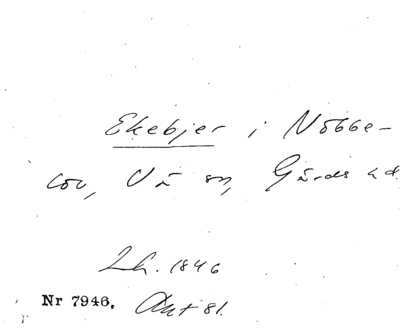 Ekebjer i Nöbbe-
löv, Vä sn, Gärds hd.
Lh. 1846
Nr 7946. Ant 81.